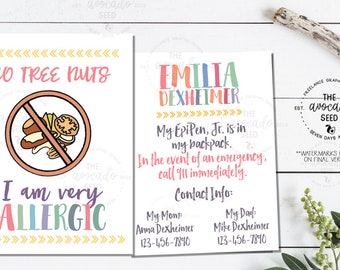 NO TREE NUTS
I am very
ALLERGIC
EMILIA
DEXHEIMER
My EpiPen, Jr. is in
my backpack.
In the event of an emergency,
call 911 immediately.
Contact Info:
My Mom:
Anna Dexheimer
123-456-7890
My Dad:
Mike Dexheimer
123-456-7890
FREELANCE GRAPHIC
THE
avocado
SEED
SEVEN DAYS A
**WATERMARKS
ON FINAL VER